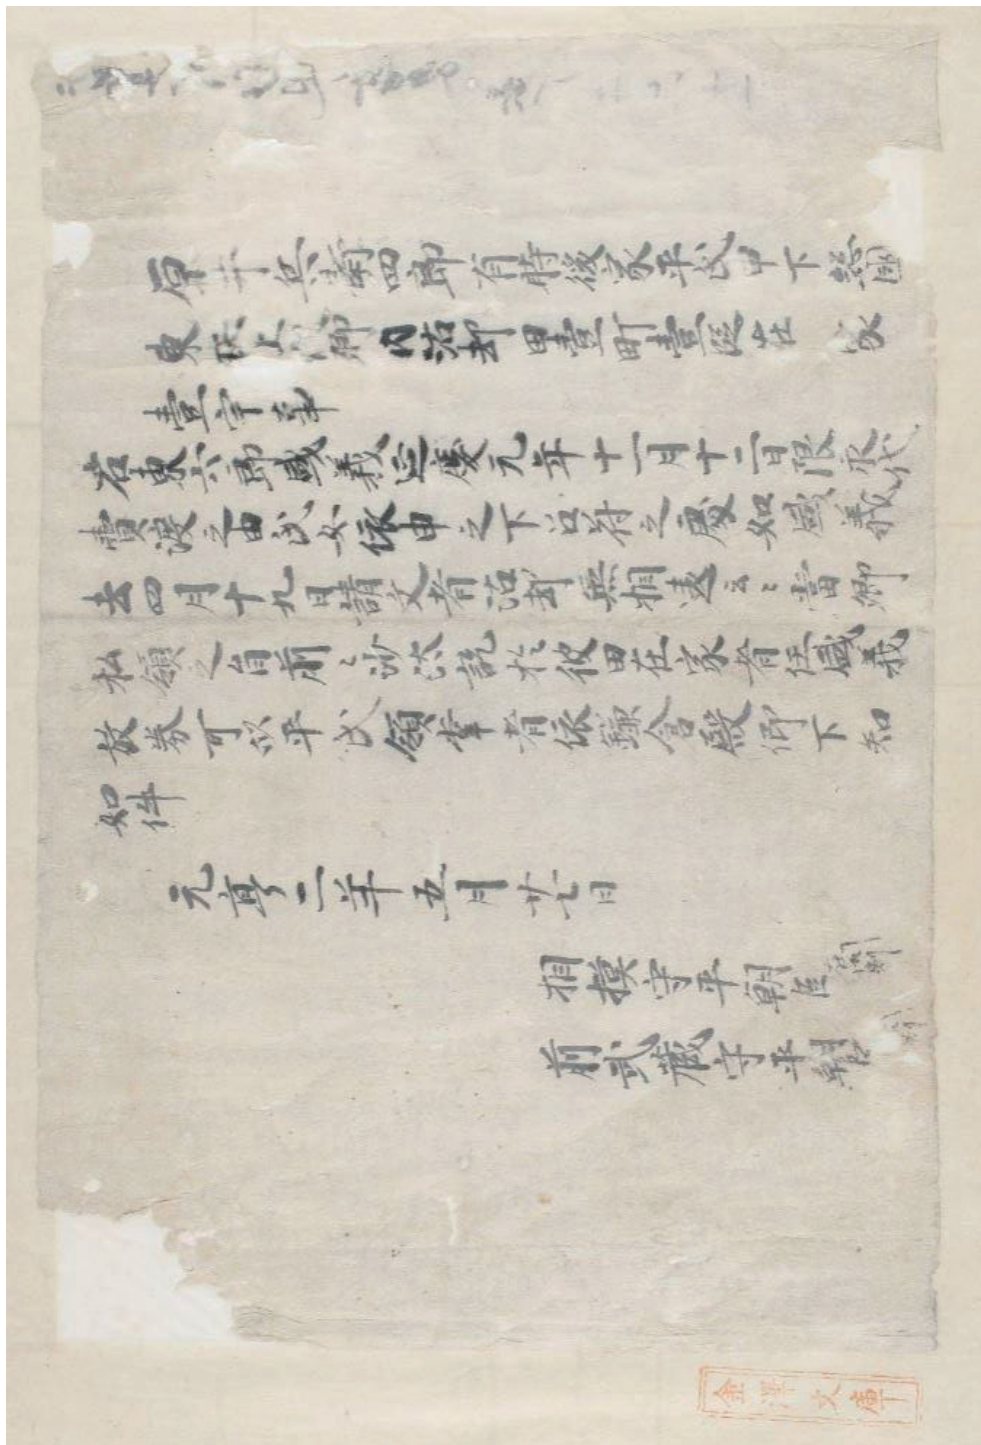 兵衛四郎有時後家平氏申下総國
東庄上代郷内沽却田壹町壹段在家
壹宇事
右東六郎盛義延慶元年十一月十二日限永代
賣渡之由氏女依申之下召符之處如盛義
去四月十九日請文者沽却無相違云々當郷
私領之旨前々沙汰訖於彼田在家者任盛義
放券可令平氏領掌者依鎌倉殿仰下知
如件
元亨二年五月廿七日
相模守平朝臣
前武藏守平朝臣
金澤文庫